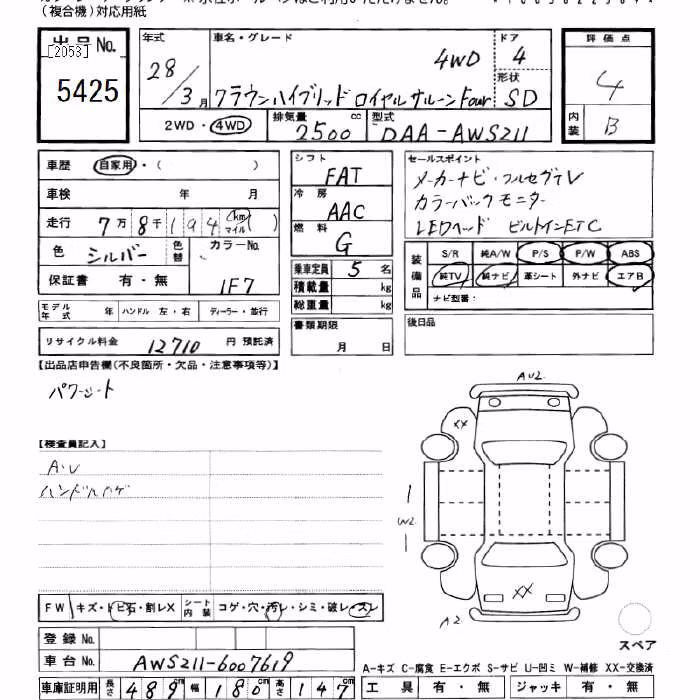 （複合機）対応用紙
出品No.
[2053]
5425
年式
28/3月
車名・グレード
4WD
クラウンハイブリッド ロイヤルサルーンFour
ドア
4
形状
SD
2WD・4WD
排気量
2500cc
型式
DAA-AWS211
評価点
4
内装
B
車歴 自家用・（ ）
車検 年 月
走行 7万8千194 km マイル
色 シルバー 色替 カラーNo. 1F7
保証書 有・無
モデル年式 年 ハンドル 左・右 ディーラー・並行
リサイクル料金 12710 円 預託済
シフト
FAT
冷房
AAC
燃料
G
乗車定員 5 名
積載量 kg
総重量 kg
書類期限
月 日
セールスポイント
メーカーナビ・フルセグTV
カラーバックモニター
LEDヘッド ビルトインETC
装備品
S/R 純A/W P/S P/W ABS
純TV 純ナビ 革シート 外ナビ エアB
ナビ型番：
後日品
【出品店申告欄（不良箇所・欠品・注意事項等）】
パワーシート
【検査員記入】
A・U
ハンドルカゲ
AU2
XX
W2
XX
A2
スペア
FW キズ・トビ石・割レX シート内装 コゲ・穴・汚レ・シミ・破レ・スレ
登録No.
車台No. AWS211-6007619
車庫証明用 長さ 489cm 幅 180cm 高さ 147cm
A-キズ C-腐食 E-エクボ S-サビ U-凹ミ W-補修 XX-交換済
工具 有・無 ジャッキ 有・無